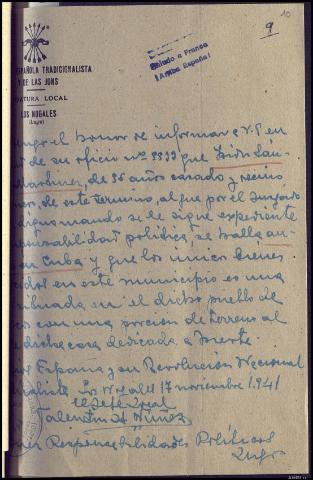 10
9
Saludo a Franco
¡Arriba España!
ESPAÑOLA TRADICIONALISTA
Y DE LAS JONS
JEFATURA LOCAL
LOS NOGALES
(Lugo)
tengo el honor de informar a V.S en
de su oficio nº 5533 que Isidro Sán-
Martinez, de 36 años casado y vecino
de este termino, al que por el Juzgado
digno mando se le sigue expediente
responsabilidad politica, se halla au-
en Cuba y que los unicos bienes
en este municipio es una
situada en el dicho pueblo de
con una porción de terreno al
dicha casa dedicada a huerta.
España y su Revolución Nacional
Los Nogales 17 noviembre 1941
El Jefe Local
Valentin A. Nuñez
Responsabilidades Politicas
Lugo